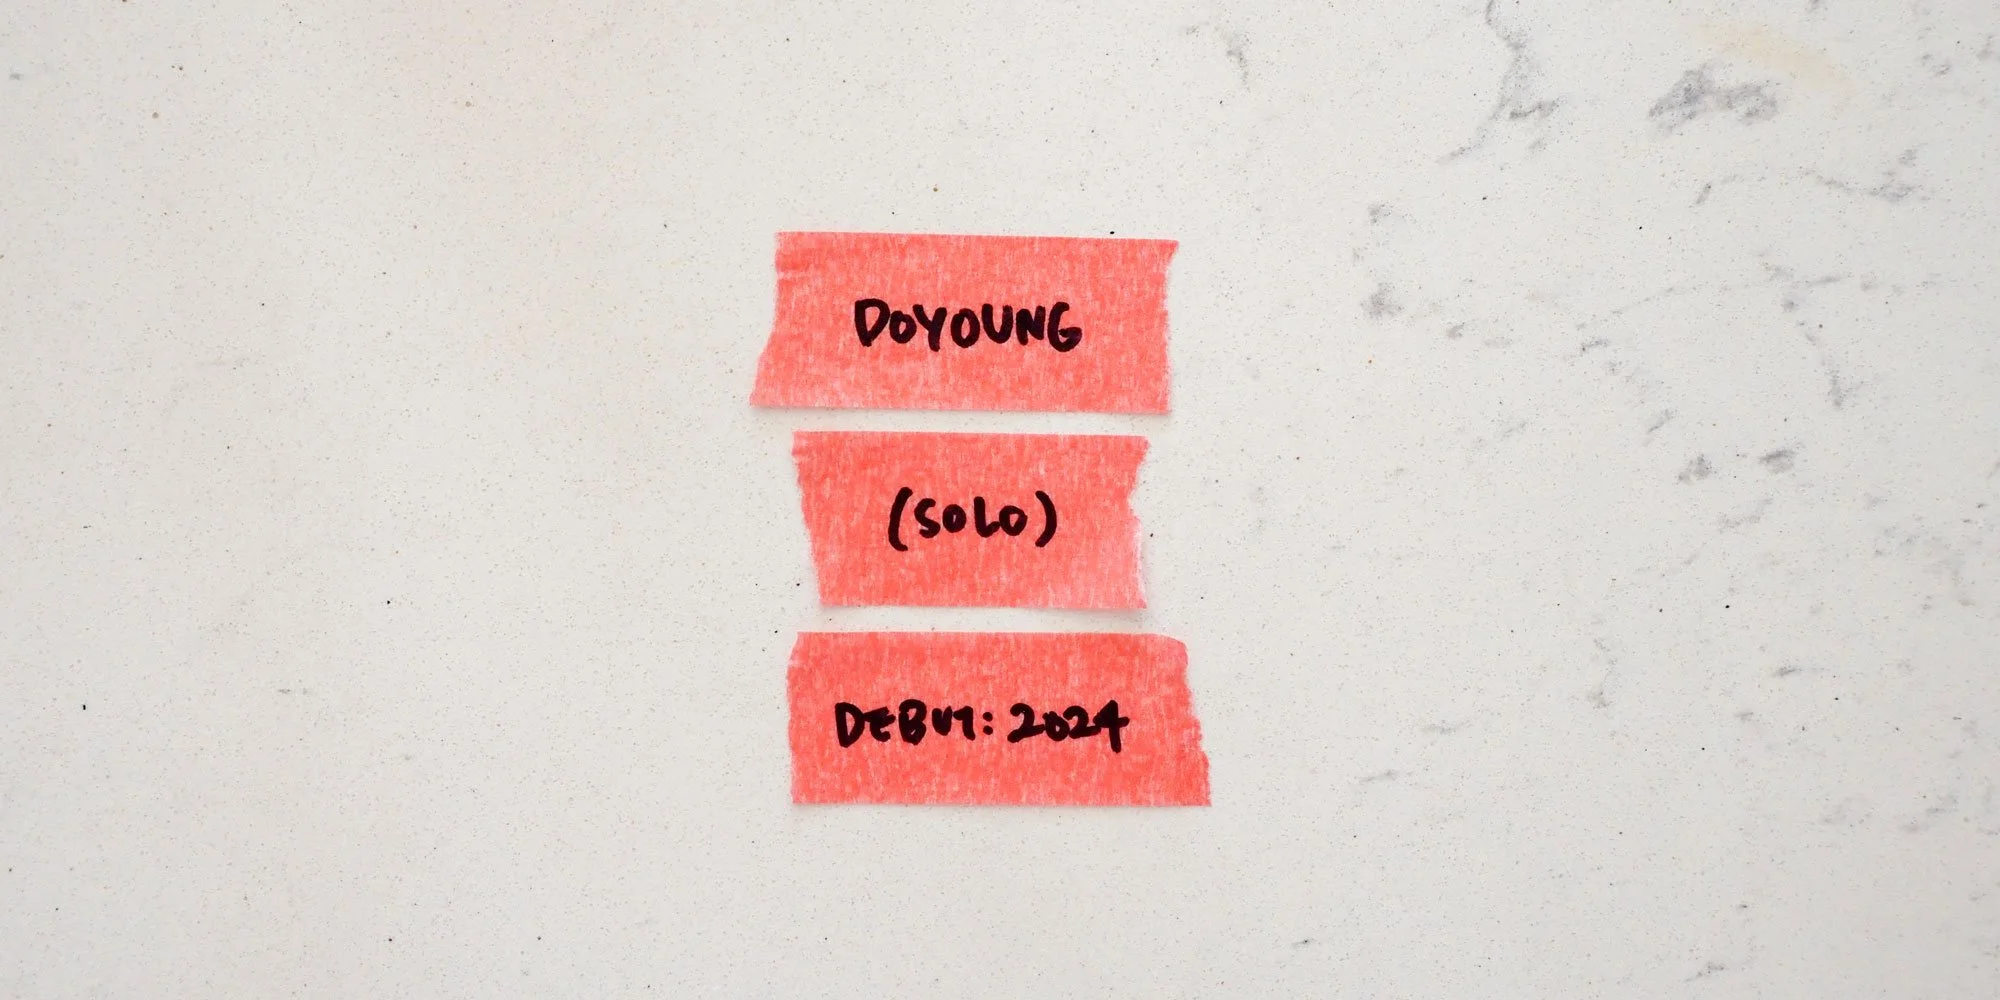 DOYOUNG
(SOLO)
DEBUT: 2024